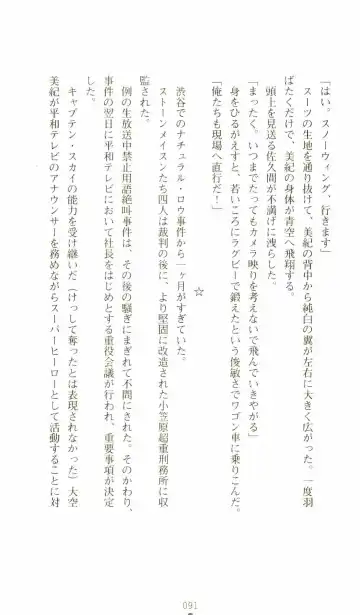 「はい。スノーウィング、行きます」
スーツの生地を通り抜けて、美紀の背中から純白の翼が左右に大きく広がった。一度羽
ばたくだけで、美紀の身体が青空へ飛翔する。
頭上を見送る佐久間が不満げに洩らした。
「まったく。いつまでたってもカメラ映りを考えないで飛んでいきやがる」
身をひるがえすと、若いころにラグビーで鍛えたという俊敏さでワゴン車に乗りこんだ。
「俺たちも現場へ直行だ！」
☆
渋谷でのナチュラル・ロウ事件から一ヶ月がすぎていた。
ストーンメイスンたち四人は裁判の後に、より堅固に改造された小笠原超重刑務所に収
監された。
例の生放送中禁止用語絶叫事件は、その後の騒ぎにまぎれて不問にされた。そのかわり、
事件の翌日に平和テレビにおいて社長をはじめとする重役会議が行われ、重要事項が決定
した。
キャプテン・スカイの能力を受け継いだ（けっして奪ったとは表現されなかった）大空
美紀が平和テレビのアナウンサーを務めながらスーパーヒーローとして活動することに対
091